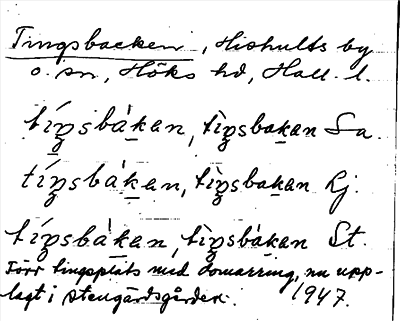 Tingsbacken, Hishults by
o. sn, Höks hd, Hall. l.
tíŋsbàkan, tìŋsbakan Sa.
tíŋsbàkan, tìŋsbakan Lj.
tíŋsbàkan, tìŋsbàkan St.
Förr tingsplats med domarring, nu upp-
lagt i stengärdsgården. 1947.